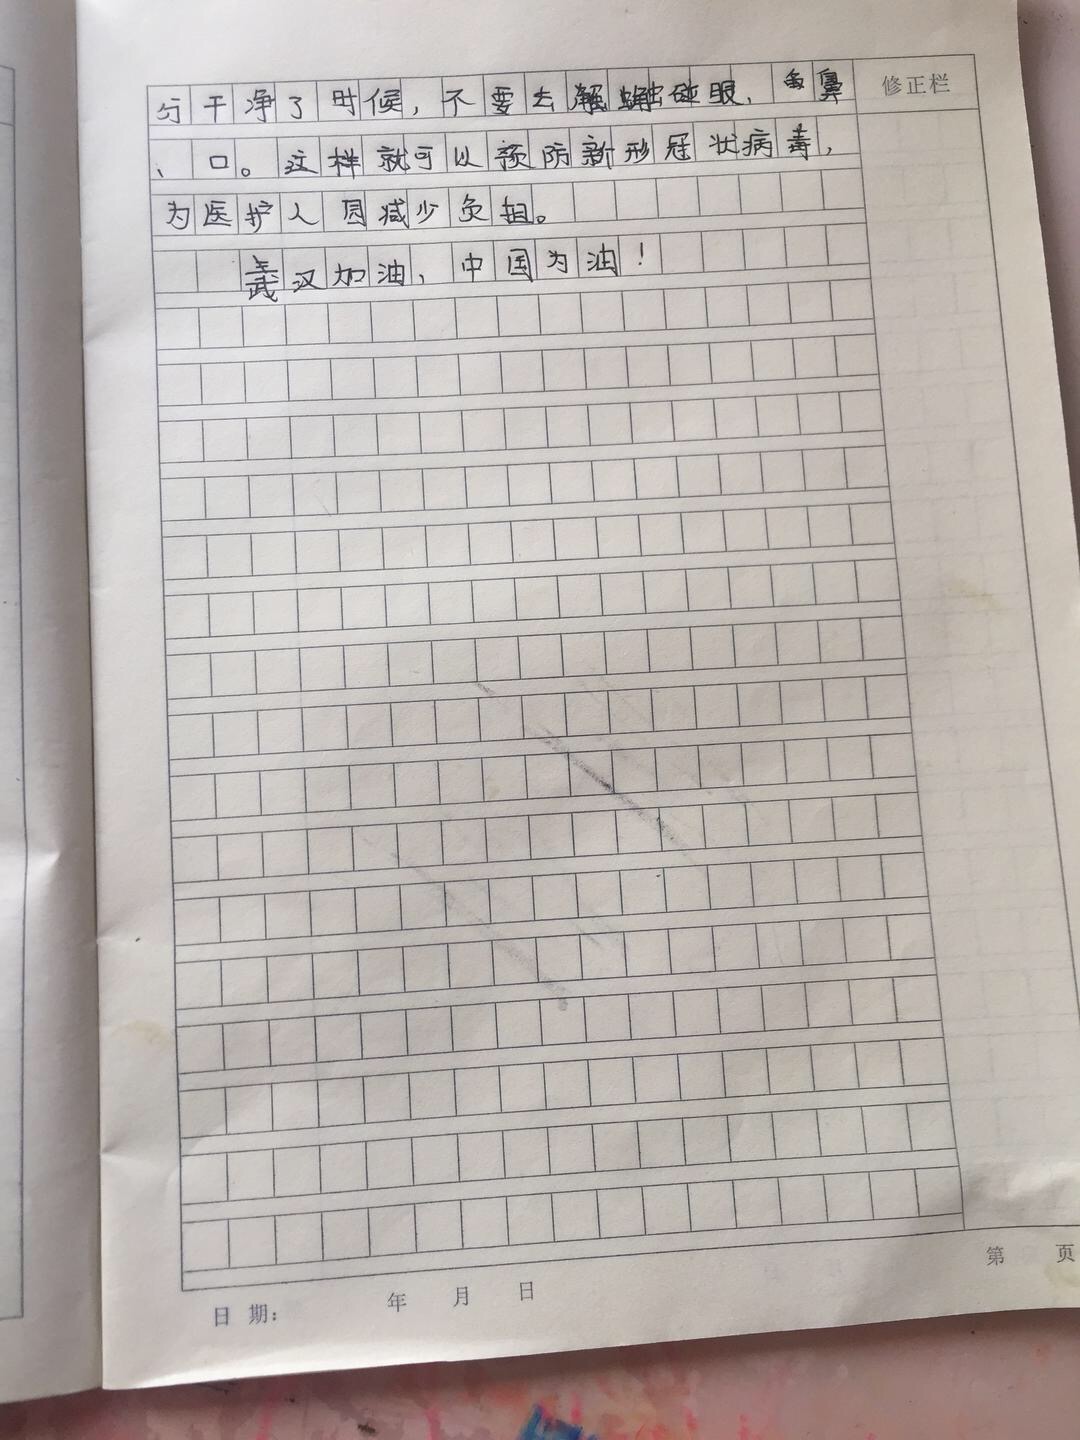 干净了时候,不要去触碰眼、鼻 修正栏
、口。这样就可以预防新形冠状病毒,
为医护人员减少负担。
武汉加油,中国为油!
第 页
日 期: 年 月 日